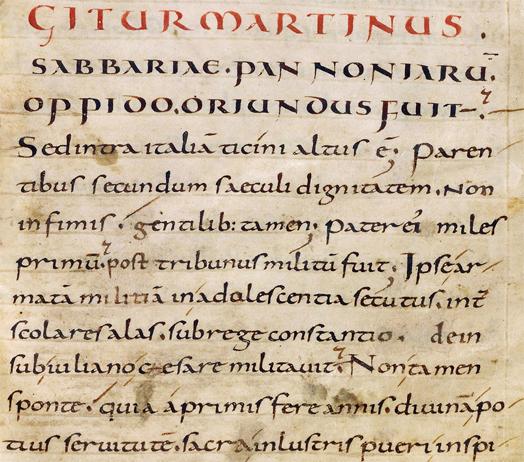 GITUR MARTINUS.
SABBARIAE. PANNONIARŪ.
OPPIDO. ORIUNDUS FUIT.
Sed intra italiā ticini altus ē. Paren
tibus secundum saeculi dignitatem. Non
infimis. gentilib: tamen. Pater eī miles
primū. post tribunus militū fuit. Ipse ar
matā militiā in adolescentia secutus. int̄
scolares alas. sub rege constantio. dein
sub iuliano caesare militauit. Non tamen
sponte. quia a primis fere annis. diuinā po
tius seruitutē. sacra inlustris pueri inspi